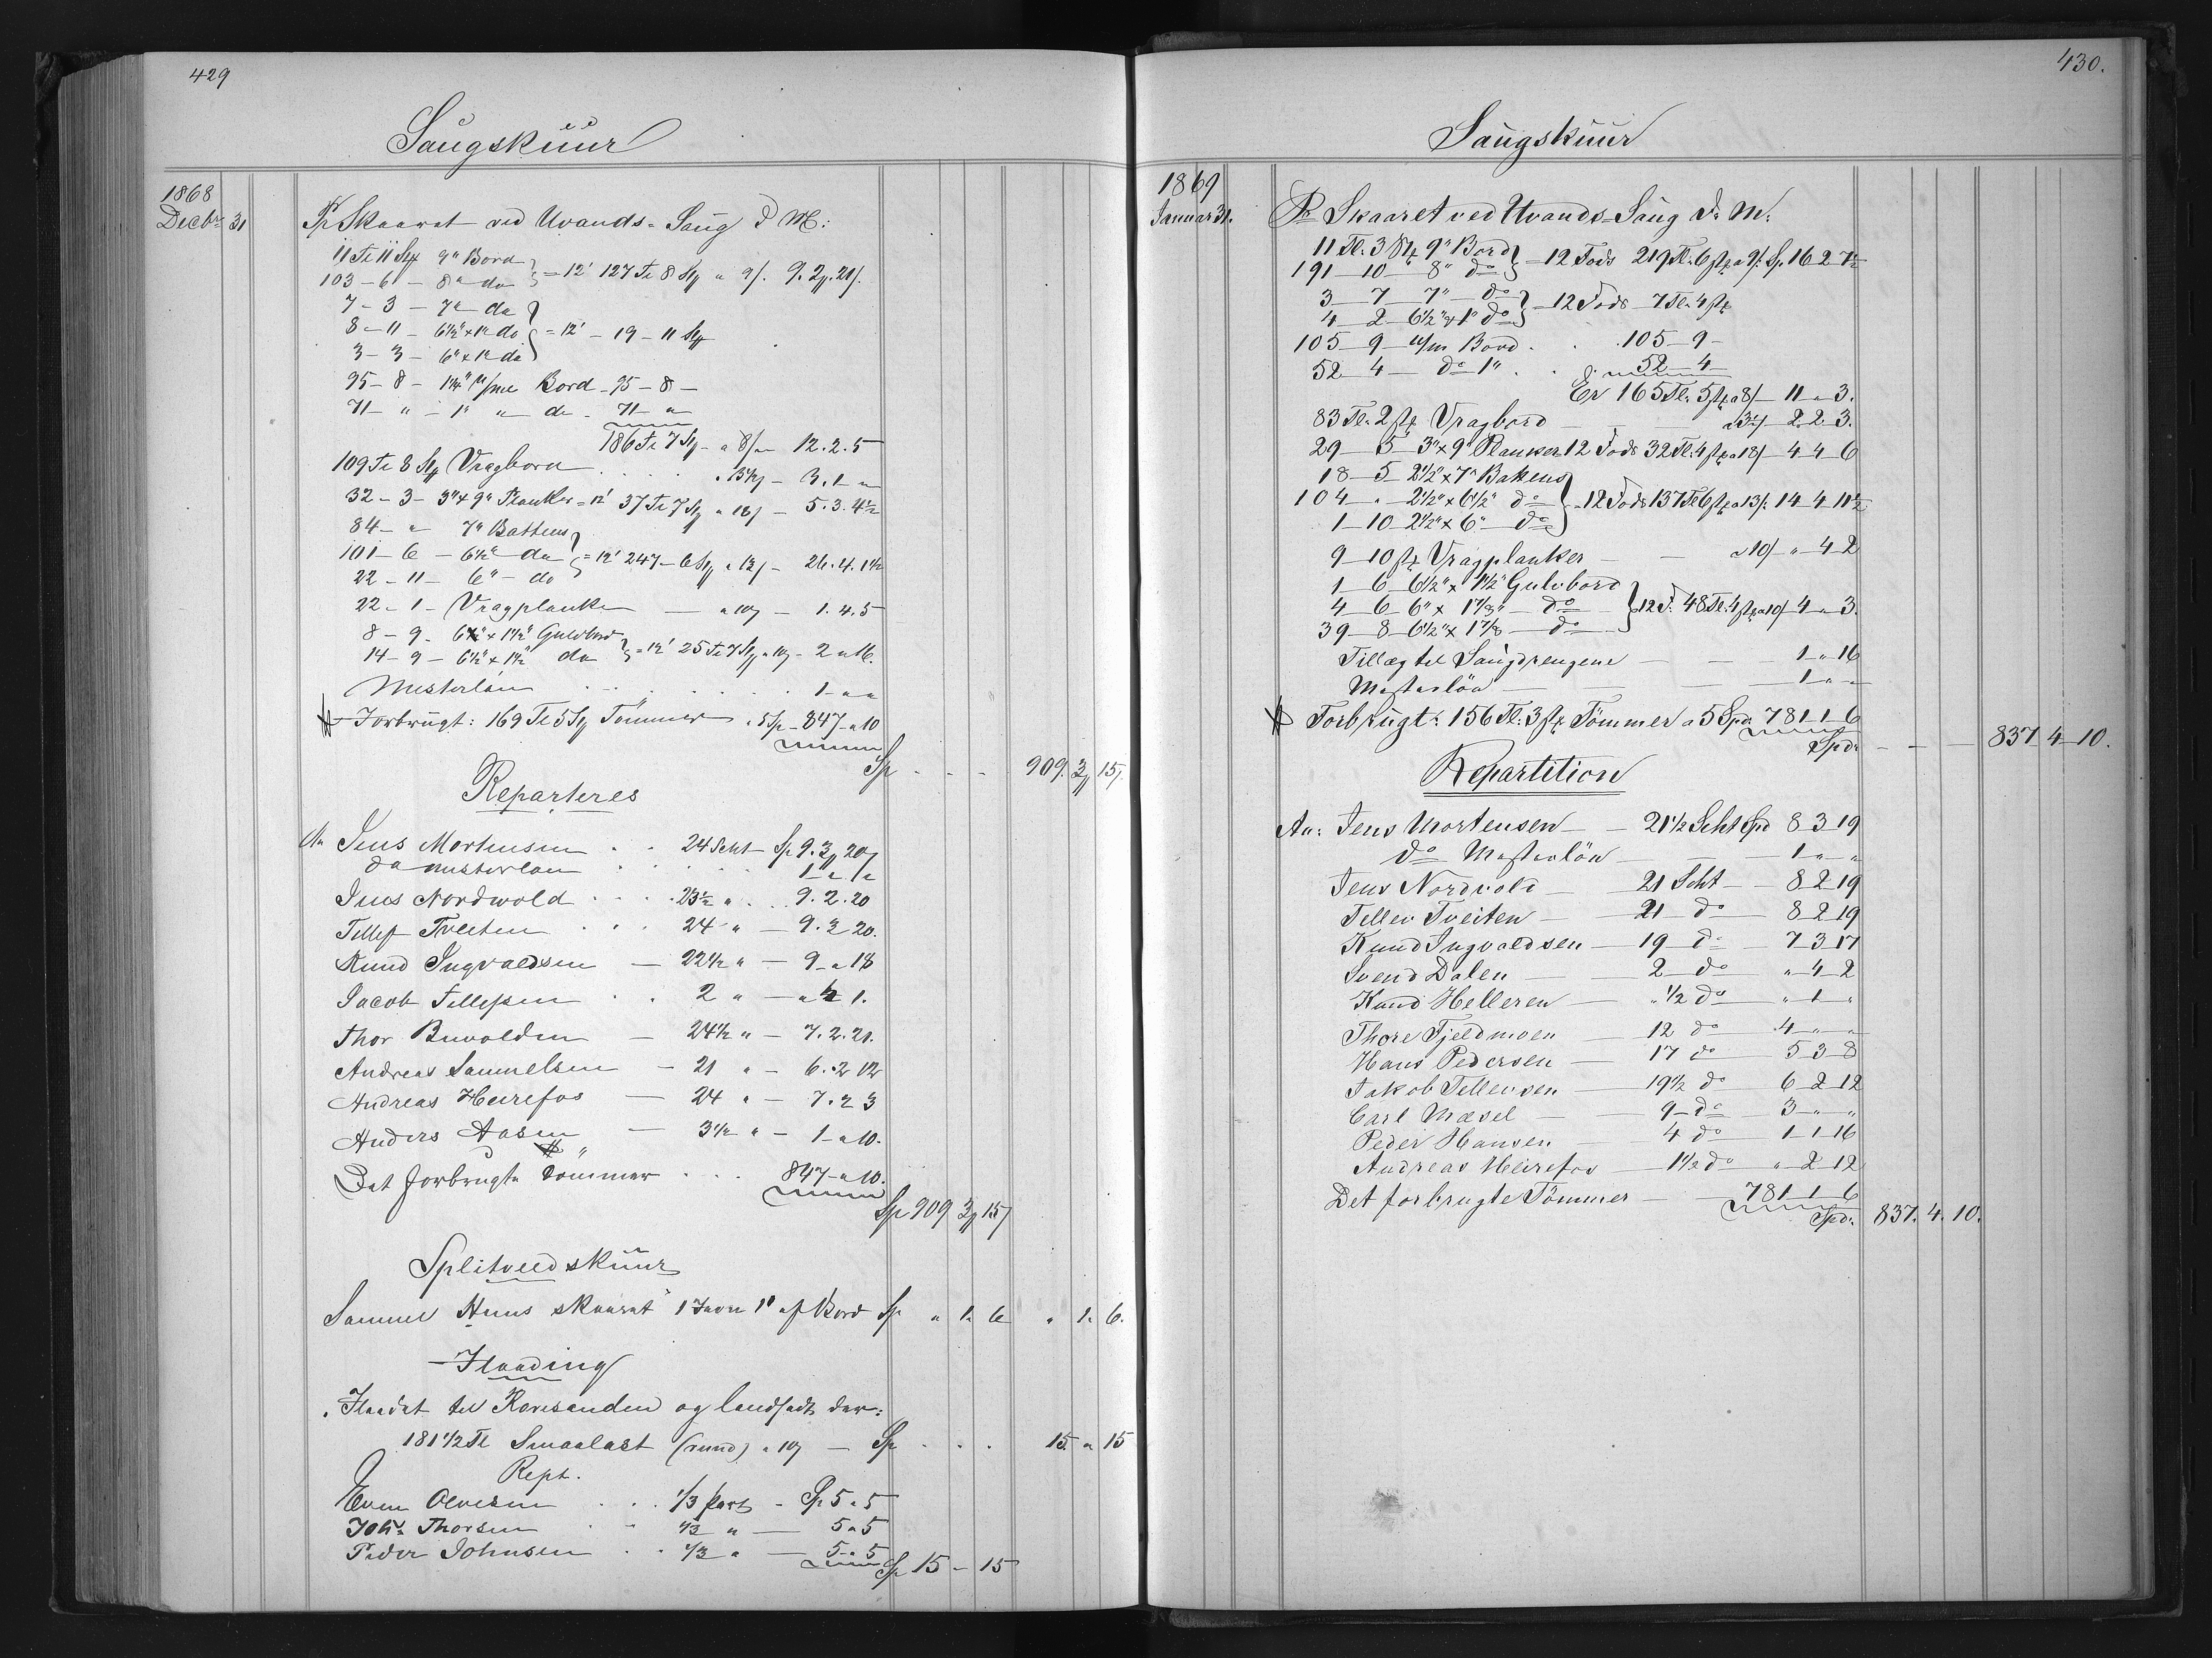 429
Saugskuur
1868
Decbr 31 Pr Skaaret ved Uvands-Saug d. M:
11 Tl 11 Stk 9" Bord
103 - 6 - 8" do } = 12' 127 Tl 8 Stk a 9/. 9. 2 21/.
7 - 3 - 7" do
8 - 11 - 6½" x 1" do } = 12' - 19 - 11 Stk
3 - 3 - 6" x 1" do
95 - 8 - 1¼" u/me Bord - 95 - 8 -
71 - " - 1" " do - 71 - "
186 Tl 7 Stk - a 8/ - 12. 2. 5
109 Tl 8 Stk Vragbord 3. 1 "
32 - 3 - 3" x 9" Planker = 12' 37 Tl 7 Stk a 18/ - 5. 3. 4½
84 - " 7" Battens
101 - 6 - 6½" do } = 12' 247 - 6 Stk a 13/ - 26. 4. 1½
22 - 11 - 6" - do
22 - 1 - Vragplanker — a 10/ - 1. 4. 5
8 - 9 - 6½" x 1½" Gulvbord
14 - 9 - 6½" x 1½" do } = 12' 25 Tl 7 Stk a 10/ - 2 " 16.
Mesterlön 1 - " "
Forbrugt: 169 Tl 5 Stk Tömmer a 5 Sp - 847 - " 10
Sp - - - 909. 3 15/.
Reparteres
An Jens Mortensen 24 Scht - Sp 9. 3 20/
do mesterlön 1 " "
Jens Nordwold 23½ " 9. 2. 20
Tellef Tveiten 24 " — 9. 3 20.
Knud Ingvaldsen — 22½ " — 9 - " 18
Jacob Tellefsen 2 " — 1.
Thor Buvolden — 24½ " — 7. 2. 21.
Andreas Samuelsen — 21 " — 6. 2 12
Andreas Heirefos — 24 " — 7. 2 3
Anders Aasen — 3½ " — 1 - " 10.
Det forbrugte Tömmer 847 - " 10.
Sp 909 3 15/
Splitvedskuur
Samuel skaaret 1 1" af Bord Sp " 1. 6 " 1. 6.
Flaading
Flaadet til Roresanden og landsadt der:
181½ Tl Smaalast (rund) a 10/ — Sp 15. " 15
Rept.
Even Olvesen 1/3 part - Sp 5 " 5
Johs Thorsen 1/3 " — 5 " 5
Peder Johnsen 1/3 " — 5 " 5
Sp 15 - 15
430.
Saugskuur
1869
Januar 31. Pr Skaaret ved Uvands-Saug d. M:
11 Tl. 3 Stk 9" Bord
191 - 10 - 8" do } = 12 Fods 219 Tl. 6 Stk a 9/. Sp. 16 2 7½
3 - 7 - 7" - do
4 - 2 - 6½" x 1" do } = 12 Fods - 7 Tl. 4 Stk
105 - 9 - u/m Bord . . 105 - 9 -
52 - 4 - do 1" . . 52 - 4 -
Er 165 Tl. 5 Stk a 8/ - 11 " 3.
83 Tl. 2 Stk Vragbord — — 2 2 3.
29 - 5 - 3" x 9" Planker 12 Fods 32 Tl. 4 Stk a 18/ - 4 4 6
18 - 5 - 2½" x 7" Batens
104 - " - 2½" x 6½" do } = 12 Fods 137 Tl 6 Stk a 13/. 14 4 11½
1 - 10 - 2½" x 6" - do
9 - 10 Stk Vragplanker — — a 10/ " 4 2
1 - 6 - 6½" x 1½" Gulvbord
4 - 6 - 6" x 1⅞" - do } 12 F. 48 Tl. 4 Stk a 10/ 4 " 3.
39 - 8 - 6½" x 1⅞ — do
Tillæg til Saugdrengene — — 1 " 16
Mesterlön — — — 1 " "
Forbrugt: 156 Tl. 3 Stk Tömmer a 5 Spd 781 1 6
Spd. — — — 837 4 10.
Repartition
An: Jens Mortensen — 21½ Scht Spd 8 3 19
do Mesterlön — — 1 " "
Jens Nordvold — 21 Scht — 8 2 19
Tellev Tveiten — 21 do 8 2 19
Knud Ingvaldsen — 19 do — 7 3 17
Svend Dalen — 2 - do " 4 2
Knud Helleren — " ½ do " 1 "
Thore Fjeldmoen — 12 do 4 " "
Hans Pedersen — 17 do 5 3 8
Jakob Tellevsen — 19½ do 6 2 12
Carl Mæsel — 9 - do 3 " "
Peder Hansen — 4 do 1 1 16
Andreas Heirefos — 1½ do " 2 12
Det forbrugte Tömmer — 781 1 6
Spd. 837. 4. 10.